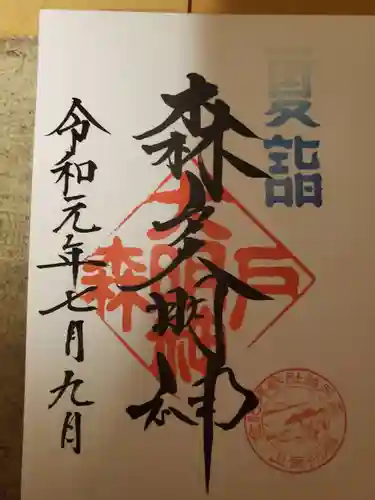 夏詣
森戸大明神
森戸大明神
令和元年七月九日